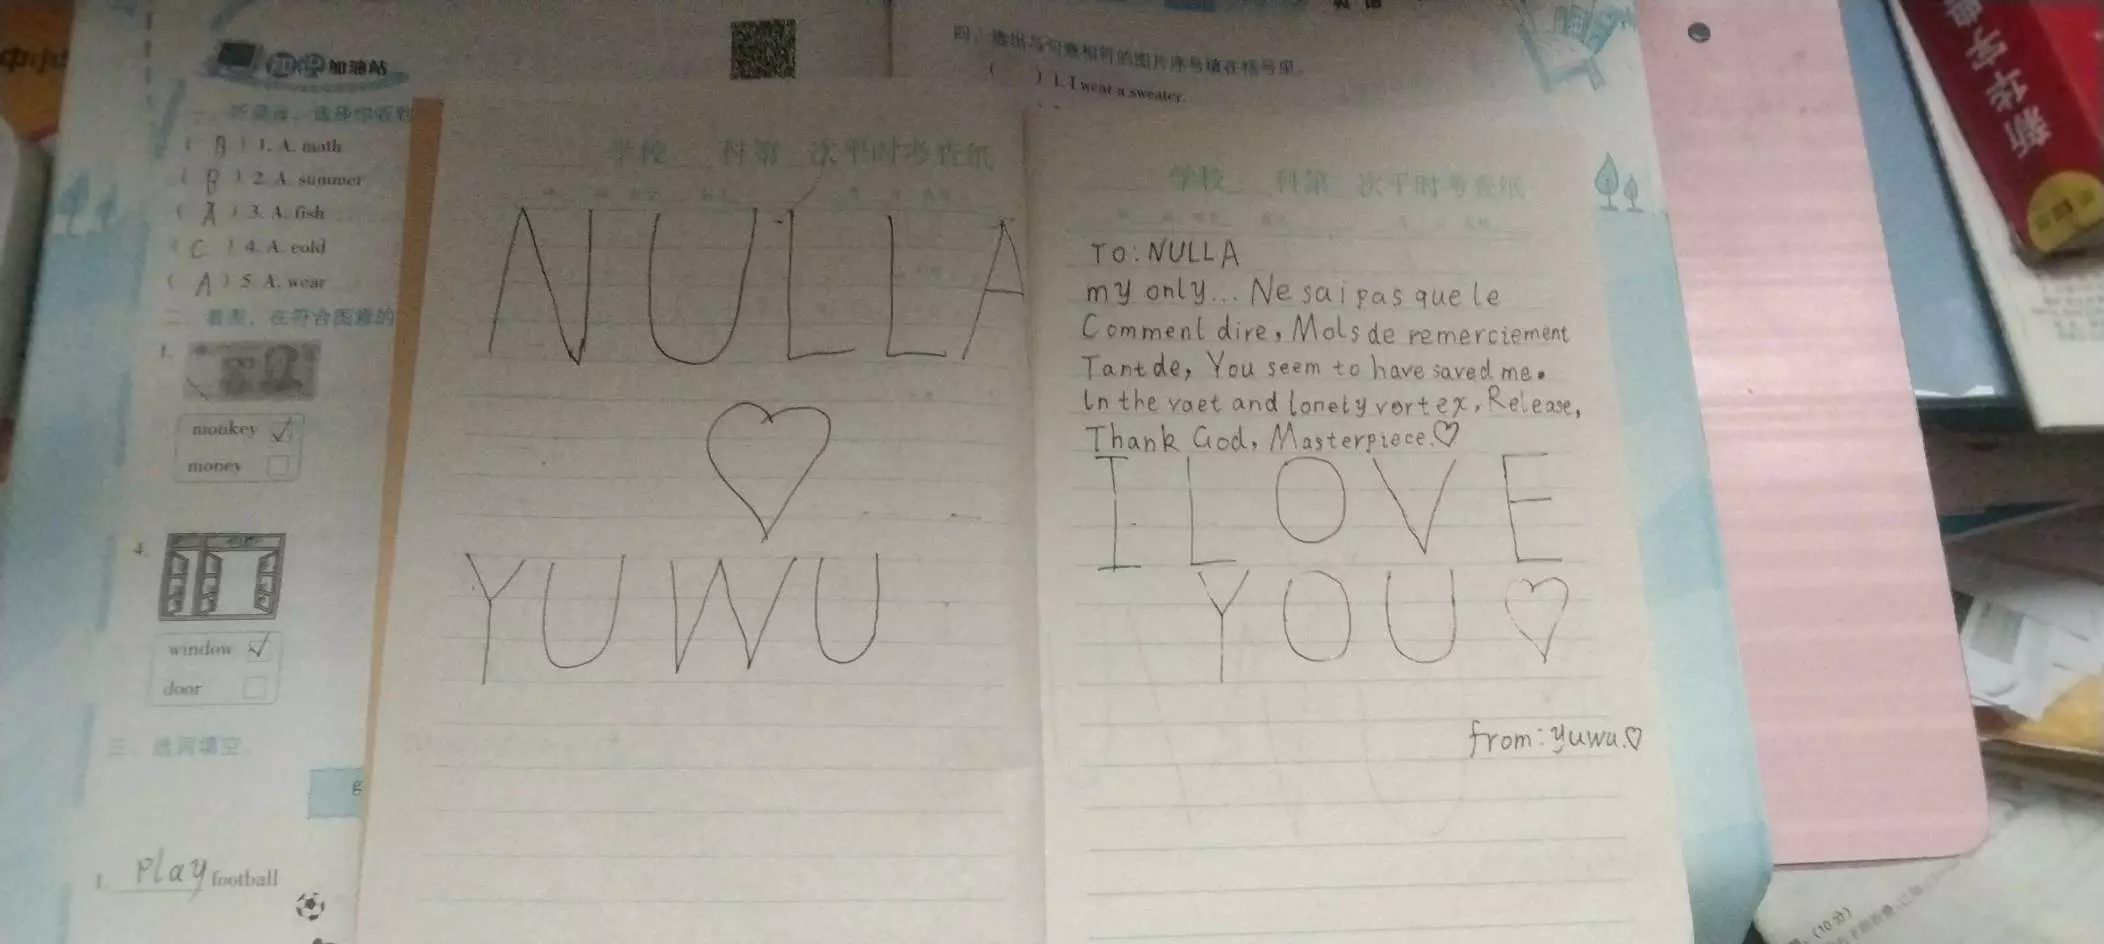 加油站
( B ) 1. A. math
( B ) 2. A. summer
( A ) 3. A. fish
( C ) 4. A. cold
( A ) 5. A. wear
二、看图，在符合图意的
1.
monkey ✓
money
4.
window ✓
door
三、选词填空。
1. play football
四、选出与句意相符的图片序号填在括号里。
( ) 1. I wear a sweater.
学校 科第 次平时考查纸
NULLA
♡
YUWU
学校 科第 次平时考查纸
To: NULLA
my only... Ne sai pas que le
Comment dire, Mols de remerciement
Tant de, You seem to have saved me.
In the vaet and lonely vortex, Release,
Thank God, Masterpiece.♡
I LOVE
YOU ♡
from: yuwu.♡
新华字典
(10分)